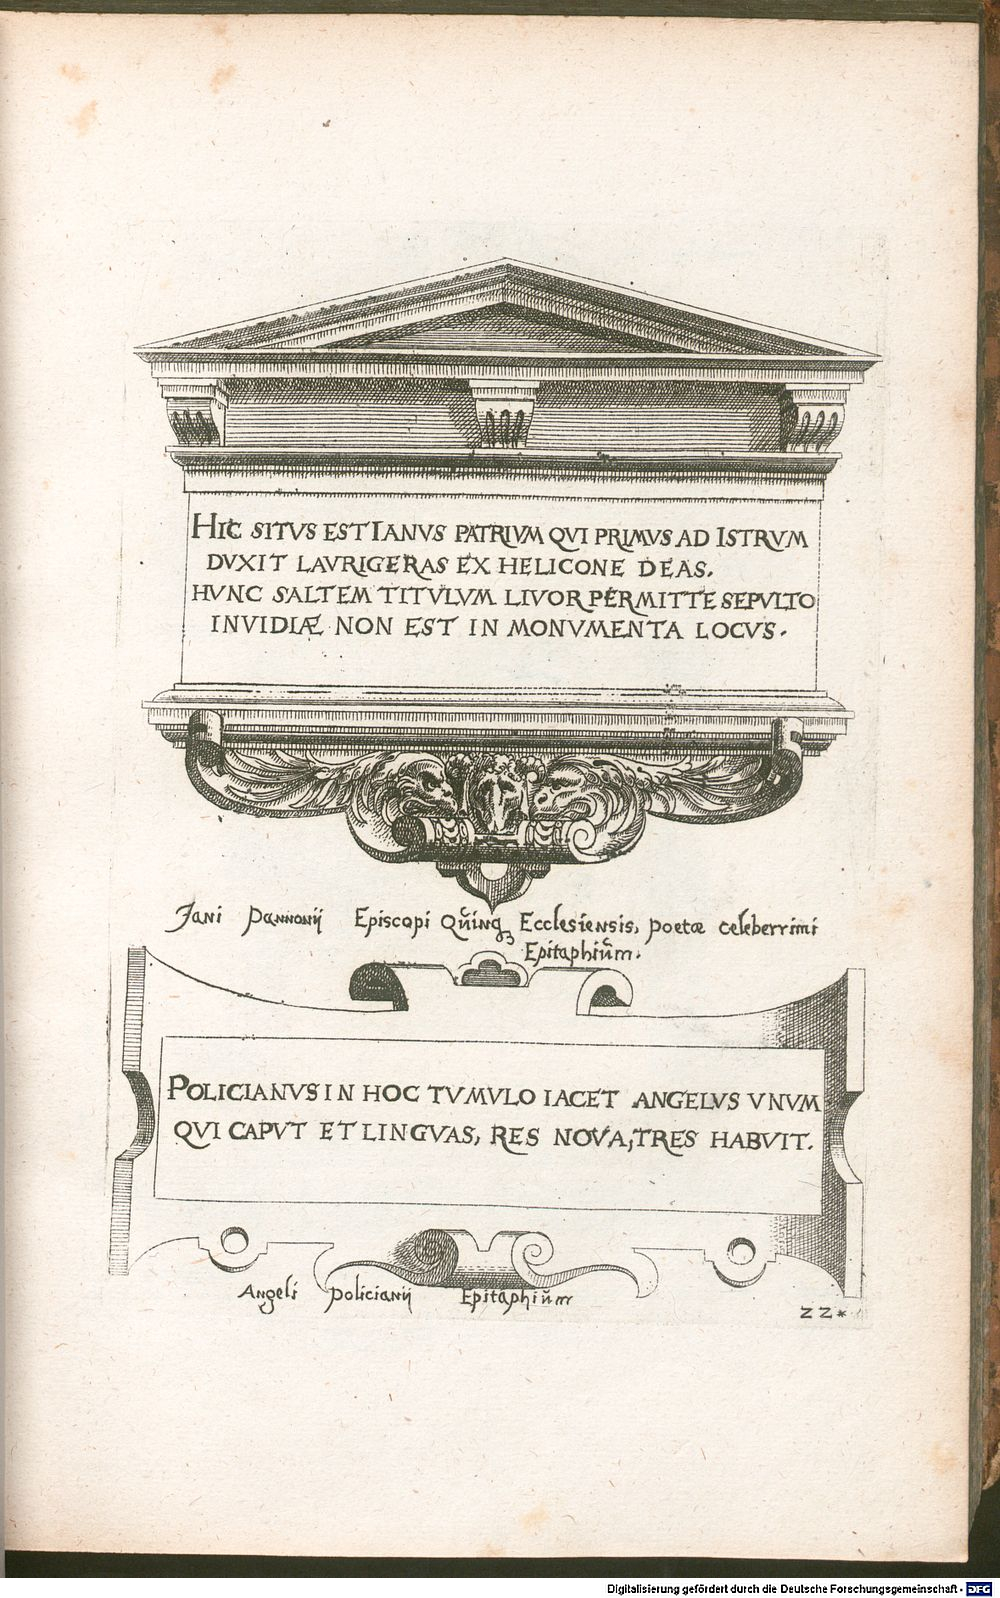 HIC SITVS EST IANVS PATRIVM QVI PRIMVS AD ISTRVM
DVXIT LAVRIGERAS EX HELICONE DEAS.
HVNC SALTEM TITVLVM LIVOR PERMITTE SEPVLTO
INVIDIÆ NON EST IN MONVMENTA LOCVS.
Jani Pannonij Episcopi Quinq Ecclesiensis, poetæ celeberrimi
Epitaphiũm.
POLICIANVS IN HOC TVMVLO IACET ANGELVS VNVM
QVI CAPVT ET LINGVAS, RES NOVA, TRES HABVIT.
Angeli policianij Epitaphiũm
22*
Digitalisierung gefördert durch die Deutsche Forschungsgemeinschaft - DFG